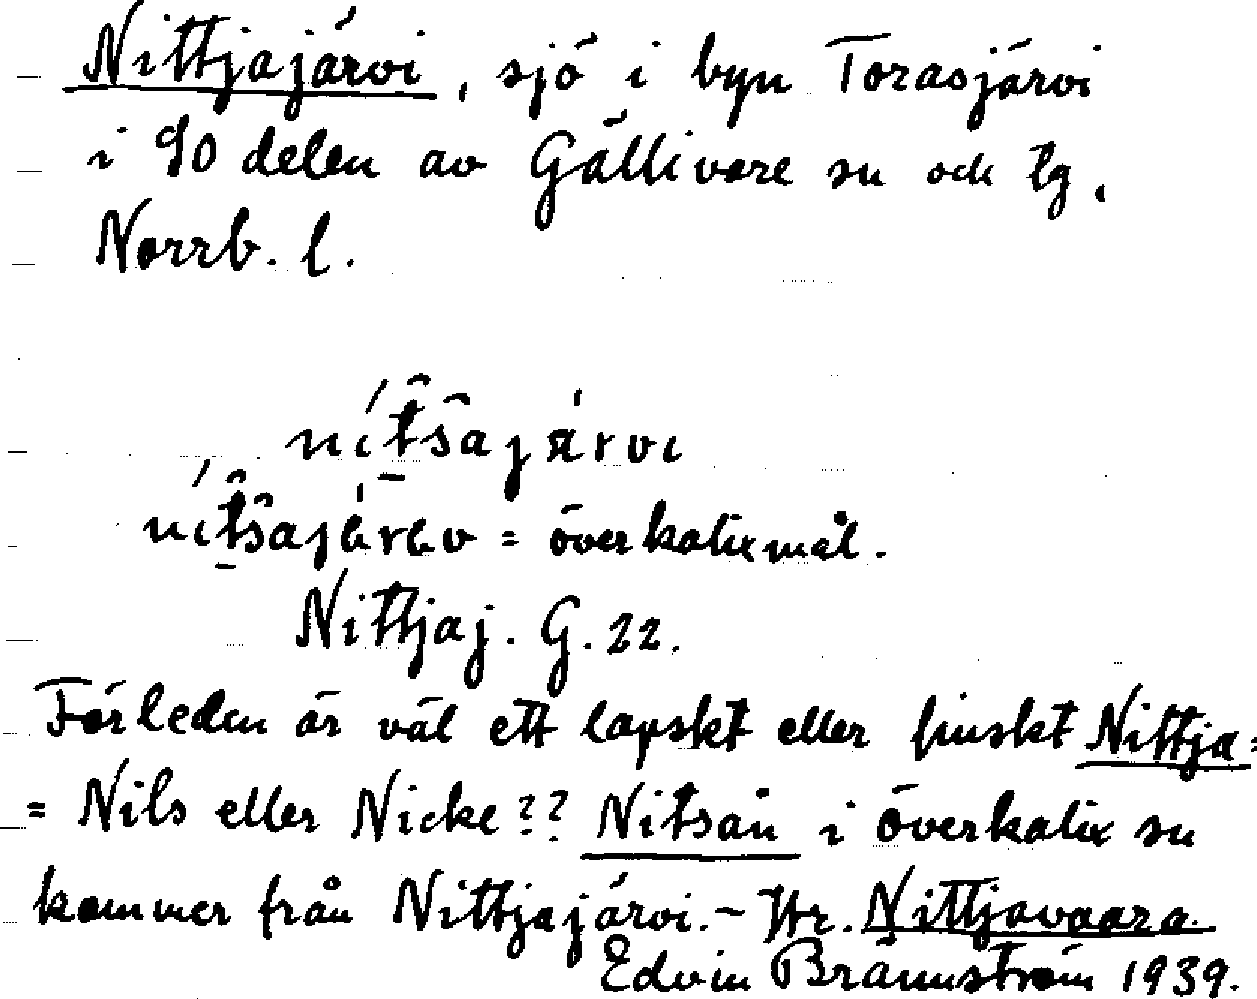 Nittjajärvi, sjö i byn Torasjärvi
i SO delen av Gällivare sn och tg,
Norrb. l.
nítšajàrvi
nítšajàrev = överkalixmål.
Nittjaj. G. 22.
Förleden är väl ett lapskt eller finskt Nittja=
= Nils eller Nicke?? Nitsån i överkalix sn
kommer från Nittjajärvi. – Jfr. Nittjavaara
Edvin Brännström 1939.